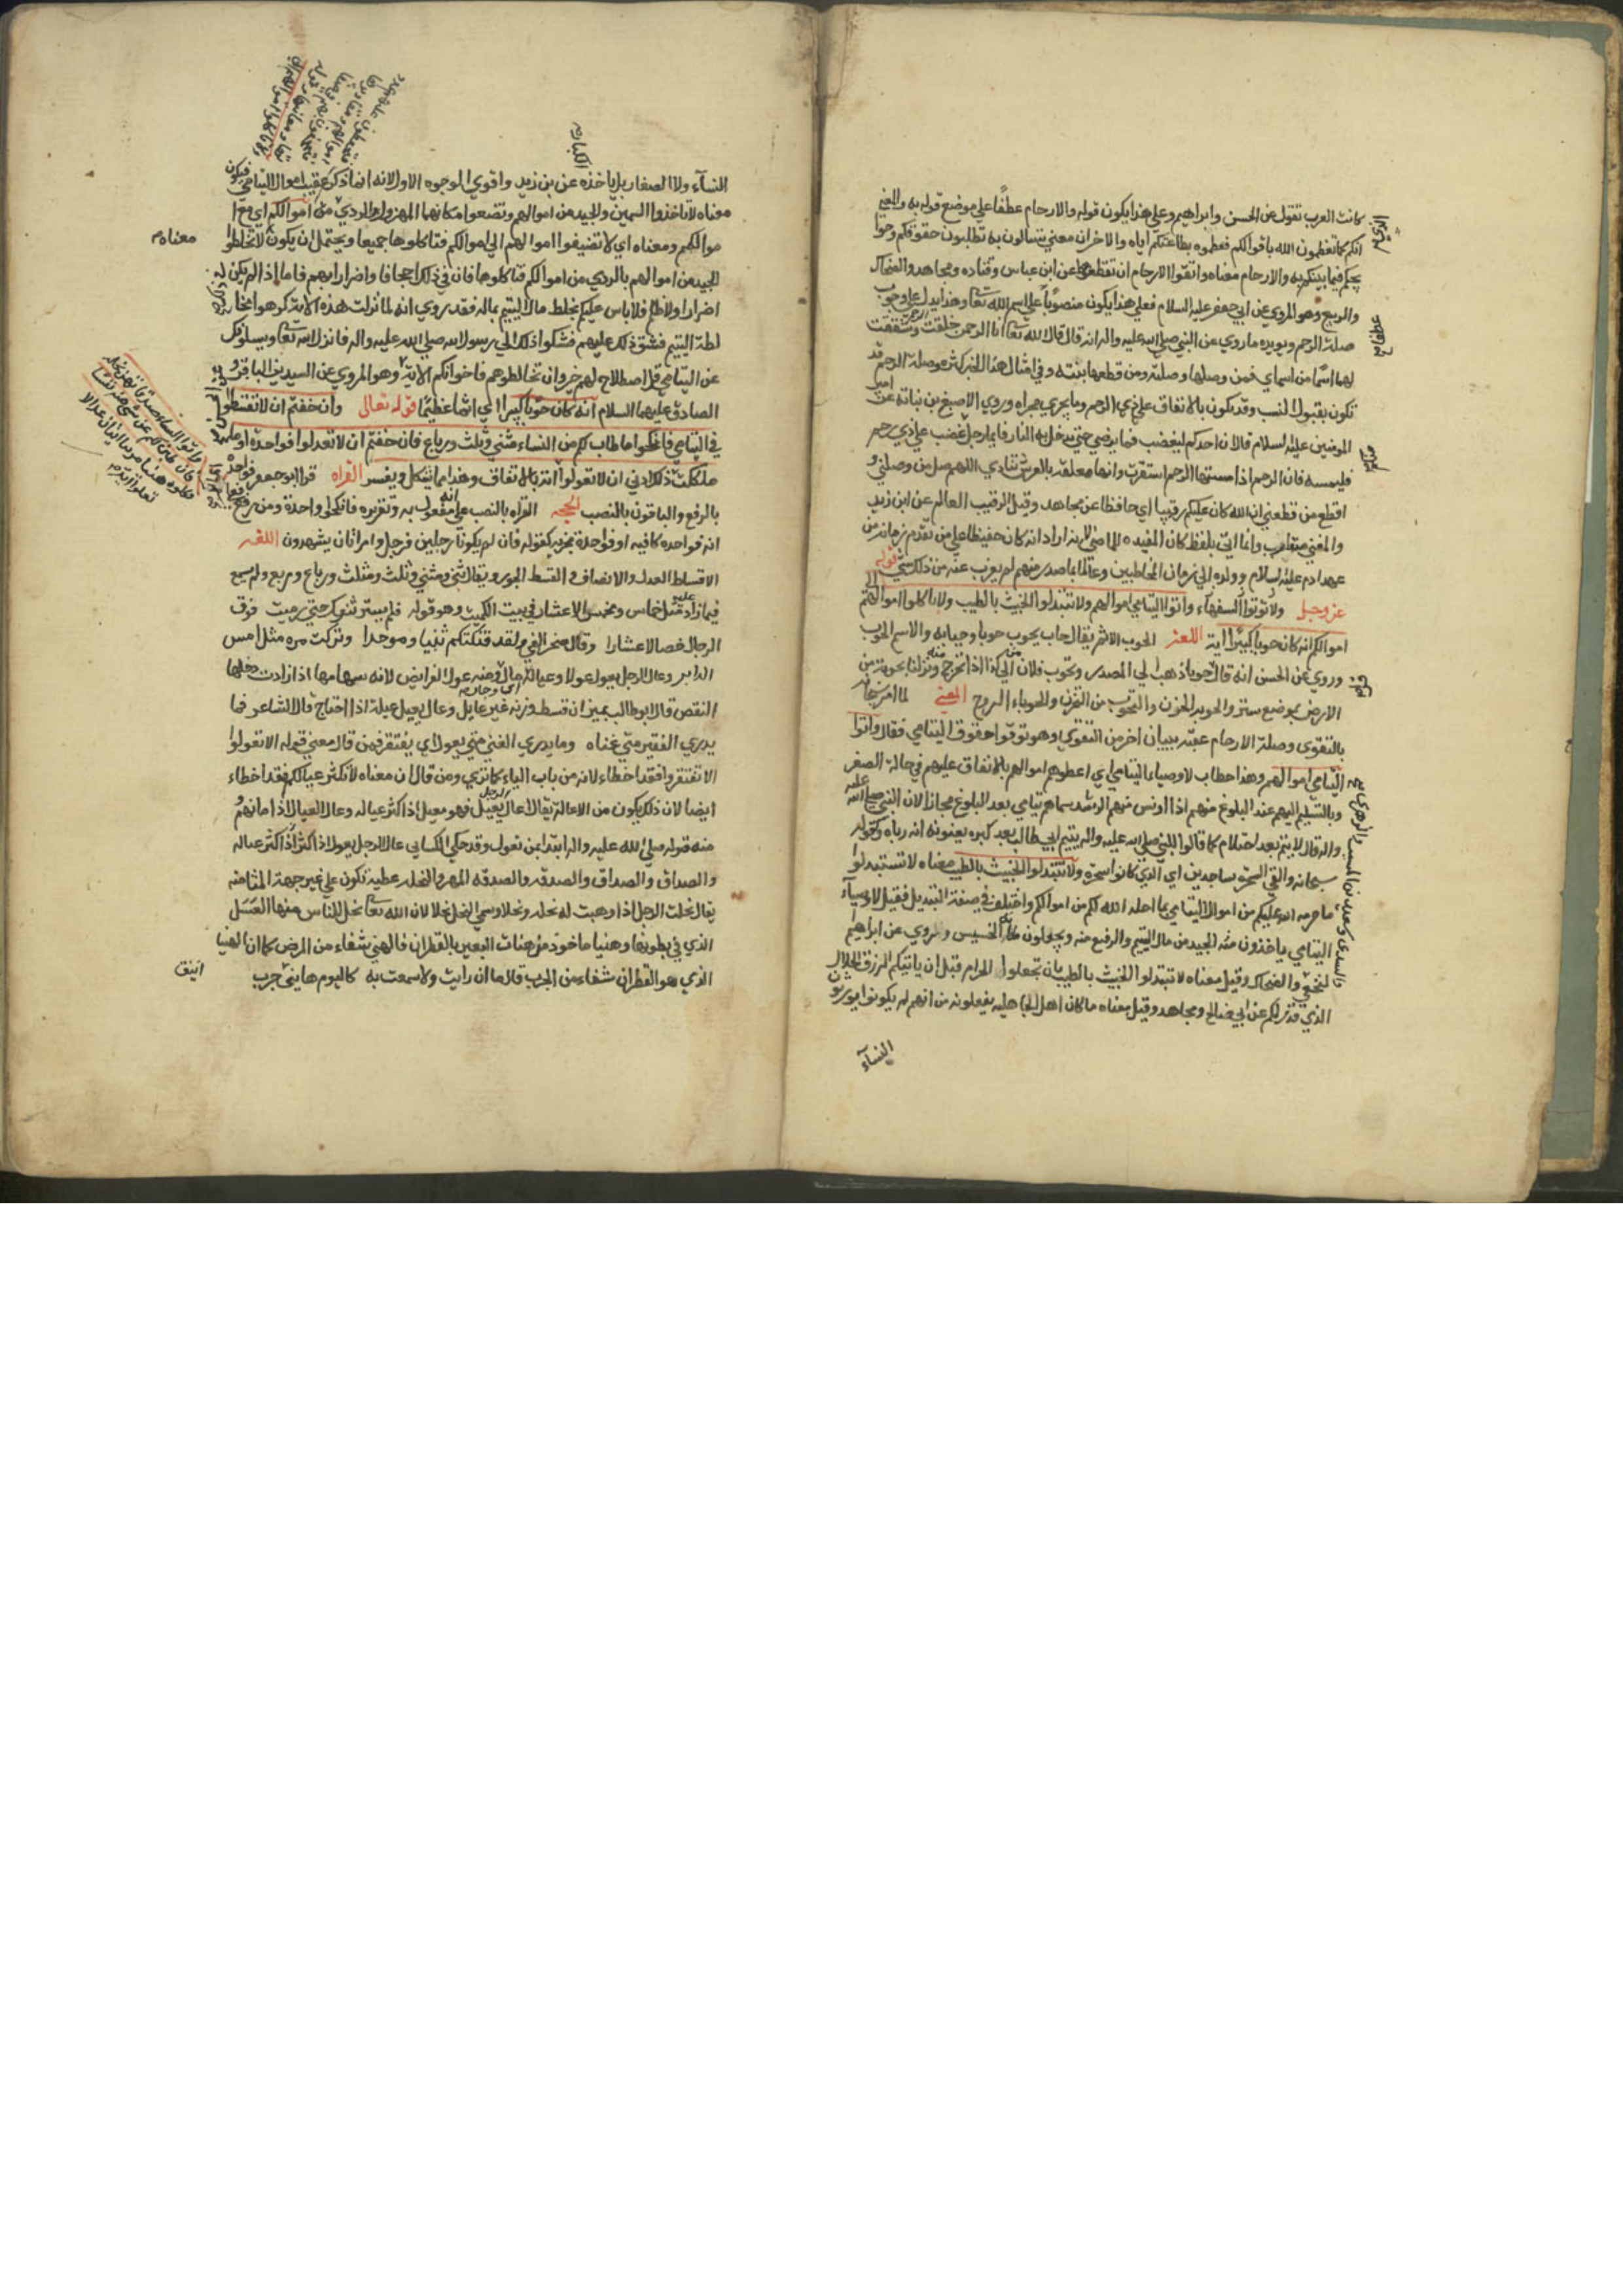 كانت العرب تقول عن الحسن وابراهيم وعلي هذا يكون قوله والارحام عطفًا علي موضع قوله به والمعني
انكم كما تعظمون الله باقوالكم فعظموه بطاعتكم اياه والاخر ان معني تسالون به تطلبون حقوقكم وحوا
يجكم فيما بينكم به والارحام معناه واتقوا الارحام ان تقطعوها عن ابن عباس وقتاده ومجاهد والضحاك
والربيع وهو المروي عن ابي جعفر عليه السلام فعلي هذا يكون منصوبًا علي اسم الله تعا وهذا يدل علي وجوب
صلة الرحم ويويده ما روي عن النبي صلي الله عليه واله انه قال قال الله تعا انا الرحمن خلقت الرحم وشققت
لها اسمًا من اسماي فمن وصلها وصلته ومن قطعها بتته وفي امثال هذا الخبر كثره وصلة الرحم قد
تكون بقبول النسب وقد يكون بالانفاق علي ذي الرحم وما يجري مجراه وروي الاصبغ بن نباته عن امير
المومنين عليه السلام قال ان احدكم ليغضب فما يرضي حتي يدخل به النار فايما رجل غضب علي ذي رحم
فليمسه فان الرحم اذا مستها الرحم استقرت وانها معلقه بالعرش تنادي اللهم صل من وصلني و
اقطع من قطعني ان الله كان عليكم رقيبا اي حافظا عن مجاهد وقيل الرقيب العالم عن ابن زيد
والمعني متقارب وانما اتي بلفظ كان المفيده للماضي لانه اراد انه كان حفيظا علي من تقدم زمانه من
عهد ادم عليه السلام وولده الي زمان المخاطبين وعالما بما صدر منهم لم يعزب عنه من ذلك شي قوله
عز وجل ولا توتوا السفهاء واتوا اليتامي اموالهم ولا تتبدلوا الخبيث بالطيب ولا تاكلوا اموالهم الي
اموالكم انه كان حوبا كبيرا اية اللغة الحوب الاثم يقال حاب يحوب حوبا وحيابه والاسم الحوب
وروي عن الحسن انه قال حوبا ذهب الي المصدر وتحوب فلان من كذا اذا تحرج منه ونزلنا بحوبة من
الارض بموضع سوء والحوبه الحزن والتحوب من التحزن والحوباء الروح المعني لما امر سبحانه
بالتقوي وصلة الارحام عقبه ببيان اخر من التقوي وهو توفوا حقوق اليتامي فقال واتوا
اليتامي اموالهم وهذا خطاب لاوصياء اليتامي اي اعطوهم اموالهم بالانفاق عليهم في حالة الصغر
وبالتسليم اليهم عند البلوغ منهم اذا اونس منهم الرشد سماهم يتامي بعد البلوغ مجازا لان النبي صلي الله عليه
واله قال لا يتم بعد احتلام كما قالوا للنبي صلي الله عليه واله يتيم ابي طالب بعد كبره يعنون به انه رباه وكقوله
سبحانه والقي السحرة ساجدين اي الذين كانوا سحرة ولا تتبدلوا الخبيث بالطيب معناه لا تستبدلوا
ما حرمه الله عليكم من اموال اليتامي بما احله الله لكم من اموالكم واختلف في صفة التبديل فقيل لاوصيآء
اليتامي ياخذون منه الجيد من مال اليتيم والرفيع منه ويجعلون مكانه الخسيس والروي عن ابراهيم
النخعي والضحاك وقيل معناه لا تتبدلوا الخبيث بالطيب بان تجعلوا الحرام قبل ان ياتيكم الرزق الحلال
الذي قدر لكم عن ابي صالح ومجاهد وقيل معناه ما كان اهل الجاهليه يفعلونه من انهم لم يكونوا يورثون
النسآء
النسآء ولا الصغار بل ياخذه عن بن زيد واقوي الوجوه الاول لانه انما ذكر عقيب اموال اليتامي فيكون
معناه لا تاخذوا السمين والجيد من اموالهم وتضعوا مكانهما المهزول والردي من اموالكم اي مع ا
موالكم ومعناه اي لا تضيفوا اموالهم الي اموالكم فتاكلوها جميعا ويحتمل ان يكون لا تخلطوا
معناه
الجيد من اموالهم بالردي من اموالكم فتاكلوها فان في ذلك اجحافا واضرارا بهم فاما اذا لم يكن
اضرارا ولا ظلم فلا باس عليكم بخلط مال اليتيم بماله فقد روي انه لما نزلت هذه الاية كرهوا مخا
لطة اليتيم فشق ذلك عليهم فشكوا ذلك الي رسول الله صلي الله عليه واله فانزل الله تعا ويسلونك
عن اليتامي قل اصطلاح لهم خير وان تخالطوهم فاخوانكم الاية وهو المروي عن السيدين الباقر و
الصادق عليهما السلام انه كان حوبا كبيرا اي اثما عظيما قوله تعالي وان خفتم ان لا تقسطوا
في اليتامي فانكحوا ما طاب لكم من النساء مثني وثلث ورباع فان خفتم ان لا تعدلوا فواحدة او ما
ملكت ذلك ادني ان لا تعولوا اية بالاتفاق وهذا مما يشكل ويفسر القراه قرا ابو جعفر فواحده
بالرفع والباقون بالنصب الحجه القراه بالنصب علي انه مفعول به وتقديره فانكحوا واحدة ومن رفع فعلي
انه فواحده كافيه او فواحدة مجزيه كقوله فان لم يكونا رجلين فرجل وامراتان يشهدون اللغه
الاقساط العدل والانصاف والقسط الجور ويقال ثني ومثني وثلث ومثلث ورباع ومربع ولم يسمع
فيما زاد عليه مثل خماس ومخمس الا عشار في بيت الكميت وهو قوله فلم يستريثوك حتي رميت فوق
الرجال خصالا عشارا وقال صخر الغي ولقد قتلتكم ثنيا وموحدا وتركت مره مثل امس
الدابر وعال الرجل يعول عولا وعيالة اي مال وجار ومنه عول الفرايض لانه سهامها اذا زادت دخلها
النقص قال ابو طالب بميزان قسط وزنه غير عايل وعال يعيل عيلة اذا احتاج قال الشاعر فما
يدري الفقير متي غناه وما يدري الغني متي يعول اي يفتقر فمن قال معني قوله الا تعولوا
الا تفتقروا فقد اخطاء لانه من باب الياء كما تري ومن قال ان معناه لا تكثر عيالكم فقد اخطاء
ايضا لان ذلك يكون من الاعالة يقال اعال الرجل يعيل فهو معيل اذا كثر عياله وعال العيال اذا مانهم
منه قوله صلي الله عليه واله ابتدا بمن تعول وقد حكي الكسايي عال الرجل يعول اذا كثر اذا كثر عياله
والصداق والصداق والصدقه والصدقه المهر والنحله عطيه تكون علي غير جهة المثامنه
يقال نحلت الرجل اذا وهبت له نحله ونحلا وسمي النحل نحلا لان الله تعا نحل للناس منها العسل
الذي في بطونها وهنيا ماخوذ من هنات البعير بالقطران فالهني شفاء من المرض كما ان الهنيا
الذي هو القطران شفاء من الجرب قال ما ان رايت ولا سمعت به كاليوم هانئ جرب
اينق